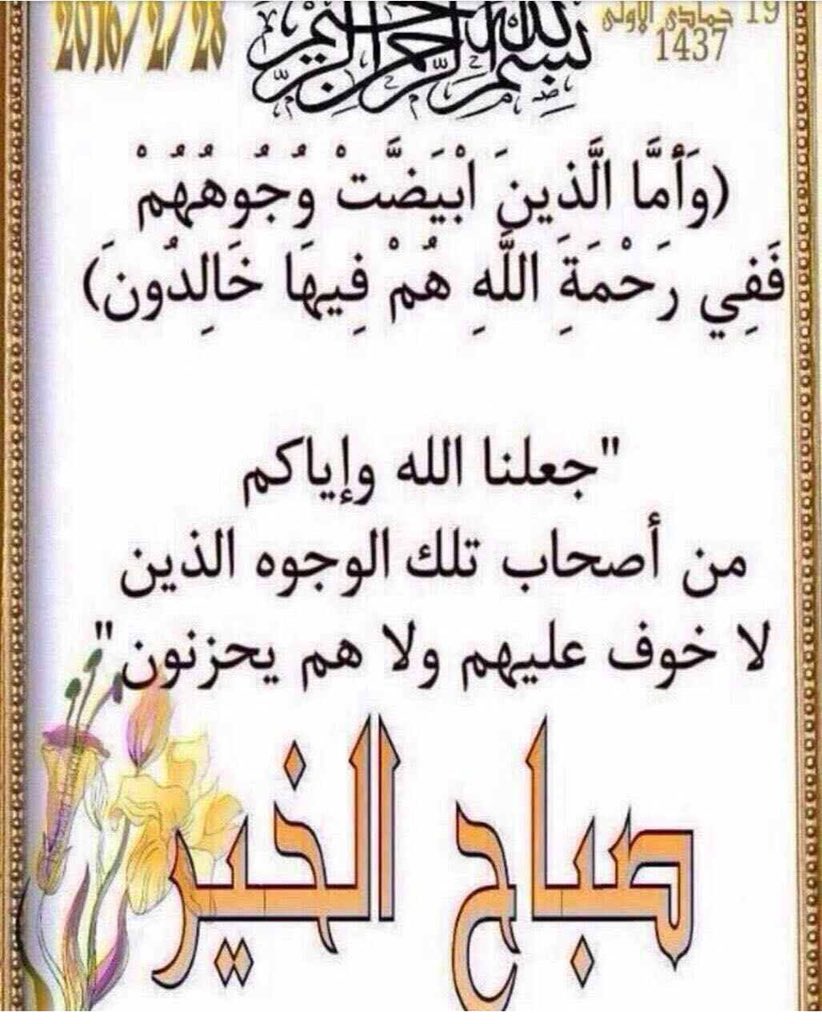 19 جمادى الاولى
1437
2016/2/28
بسم الله الرحمن الرحيم
(وَأَمَّا الَّذِينَ ابْيَضَّتْ وُجُوهُهُمْ
فَفِي رَحْمَةِ اللَّهِ هُمْ فِيهَا خَالِدُونَ)
"جعلنا الله وإياكم
من أصحاب تلك الوجوه الذين
لا خوف عليهم ولا هم يحزنون"
صباح الخير